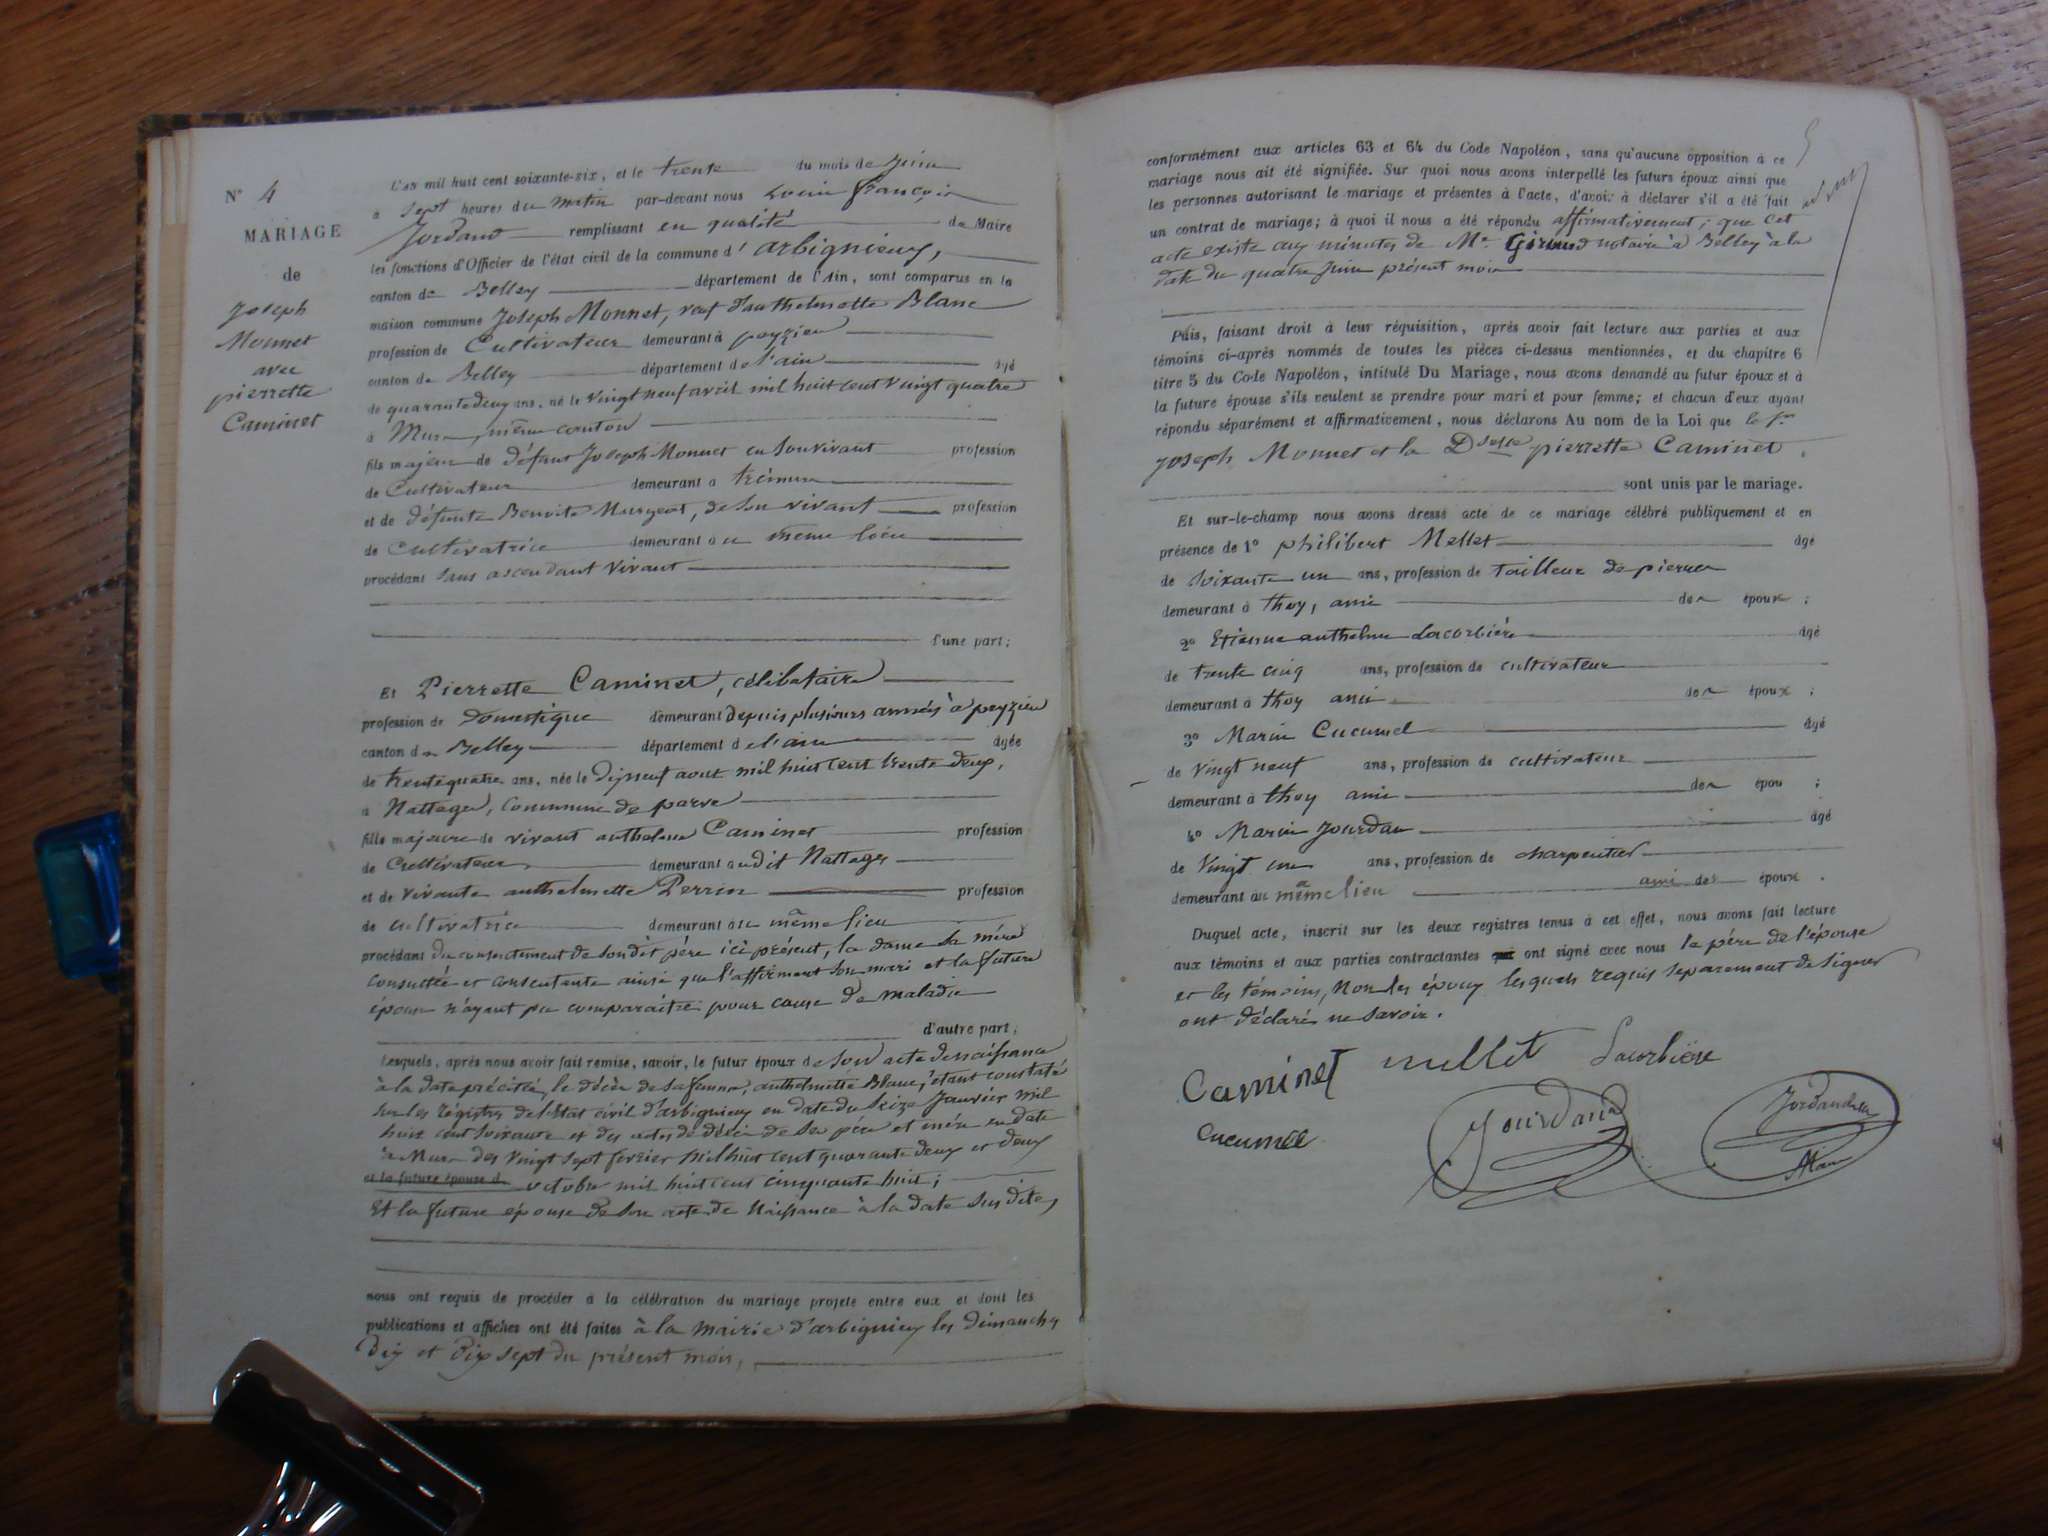 N° 4
MARIAGE
de
Joseph
Monnet
avec
pierrette
Caminet
L'an mil huit cent soixante-six, et le trente du mois de Juin
à sept heures du matin par-devant nous Louis françois
Jordand remplissant en qualité de Maire
les fonctions d'Officier de l'état civil de la commune d'arbignieux,
canton de Belley département de l'Ain, sont comparus en la
maison commune Joseph Monnet, veuf d'anthelmette Blanc
profession de Cultivateur demeurant à peyzieu
canton de Belley département de l'ain âgé
de quarante deux ans, né le vingt neuf avril mil huit cent vingt quatre
à Murs même canton
fils majeur de défunt Joseph Monnet en son vivant profession
de Cultivateur demeurant à
et de défunte Benoite de son vivant profession
de Cultivatrice demeurant au même lieu
procédant sans ascendant vivant
d'une part;
Et Pierrette Caminet, célibataire
profession de Domestique demeurant depuis plusieurs années à peyzieu
canton de Belley département de l'ain âgée
de trente quatre ans, née le dixneuf aout mil huit cent trente deux,
à Nattages, commune de parves
fille majeure de vivant anthelme Caminet profession
de Cultivateur demeurant audit Nattages
et de vivante anthelmette Perrin profession
de cultivatrice demeurant au même lieu
procédant du consentement de sondit père ici présent, la dame sa mère
consultée et consentante ainsi que l'affirment son mari et la future
épouse n'ayant pu comparaître pour cause de maladie
d'autre part;
Lesquels, après nous avoir fait remise, savoir, le futur époux de son acte de naissance
à la date précitée, le décès de sa femme, anthelmette Blanc, étant constaté
sur les régistres de l'état civil d'arbignieux en date du seize Janvier mil
huit cent soixante et des actes de décès de ses père et mère en date
à Murs des vingt sept fevrier mil huit cent quarante deux et deux
et la future épouse d octobre mil huit cent cinquante huit;
Et la future épouse de son acte de Naissance à la date sus dite,
nous ont requis de procéder à la célébration du mariage projeté entre eux et dont les
publications et affiches ont été faites à la mairie d'arbignieux les dimanches
dix et dix sept du présent mois,
5
conformément aux articles 63 et 64 du Code Napoléon, sans qu'aucune opposition à ce
mariage nous ait été signifiée. Sur quoi nous avons interpellé les futurs époux ainsi que
les personnes autorisant le mariage et présentes à l'acte, d'avoir à déclarer s'il a été fait
un contrat de mariage; à quoi il nous a été répondu affirmativement; que cet
acte existe aux minutes de Me Giraud notaire à Belley à la
date du quatre Juin présent mois
Puis, faisant droit à leur réquisition, après avoir fait lecture aux parties et aux
témoins ci-après nommés de toutes les pièces ci-dessus mentionnées, et du chapitre 6
titre 5 du Code Napoléon, intitulé Du Mariage, nous avons demandé au futur époux et à
la future épouse s'ils veulent se prendre pour mari et pour femme; et chacun d'eux ayant
répondu séparément et affirmativement, nous déclarons Au nom de la Loi que le Sr
Joseph Monnet et la Dselle pierrette Caminet
sont unis par le mariage.
Et sur-le-champ nous avons dressé acte de ce mariage célébré publiquement et en
présence de 1° philibert Mellet âgé
de soixante un ans, profession de tailleur de pierres
demeurant à thoy, ami des époux ;
2° Etienne anthelme Lacorbière âgé
de trente cinq ans, profession de cultivateur
demeurant à thoy ami des époux ;
3° Marin Cucumel âgé
de vingt neuf ans, profession de cultivateur
demeurant à thoy ami des épou ;
4° Marin Jourdan âgé
de Vingt un ans, profession de charpentier
demeurant au même lieu ami des époux .
Duquel acte, inscrit sur les deux registres tenus à cet effet, nous avons fait lecture
aux témoins et aux parties contractantes ont signé avec nous le père de l'épouse
et les témoins, Non les époux lesquels requis separement de signer
ont déclaré ne savoir.
Caminet mellet Lacorbière
Jourdan Jordand
Cucumel